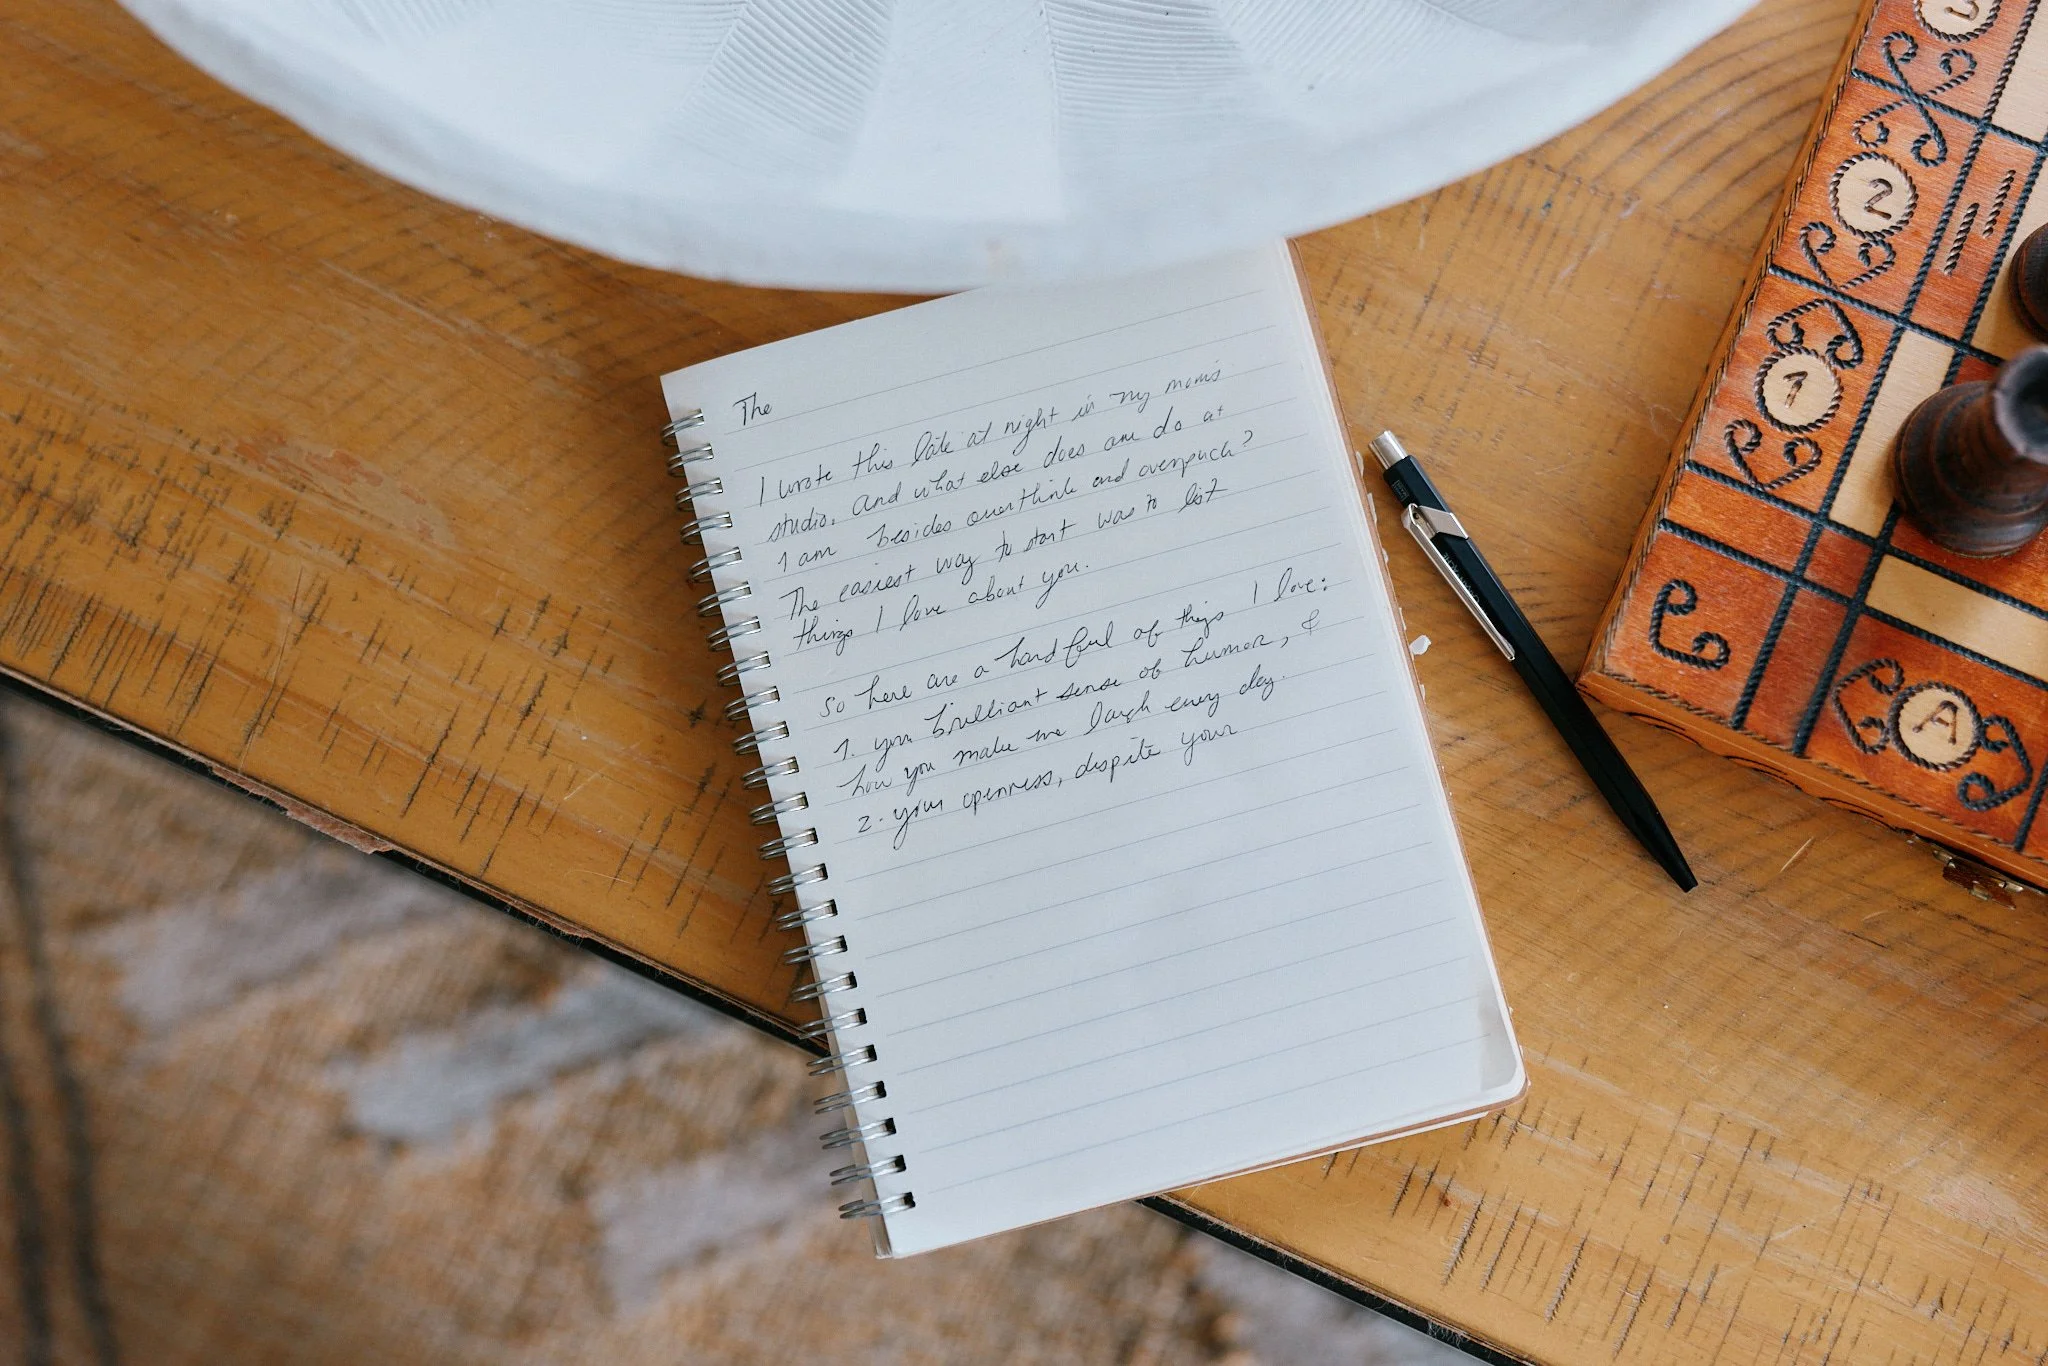 The
I wrote this late at night in my mom's
studio. And what else does one do at
1 am besides overthink and overpack?
The easiest way to start was to list
things I love about you.
So here are a handful of things I love:
1. your brilliant sense of humor, &
how you make me laugh every day.
2. your openness, despite your
2
1
A